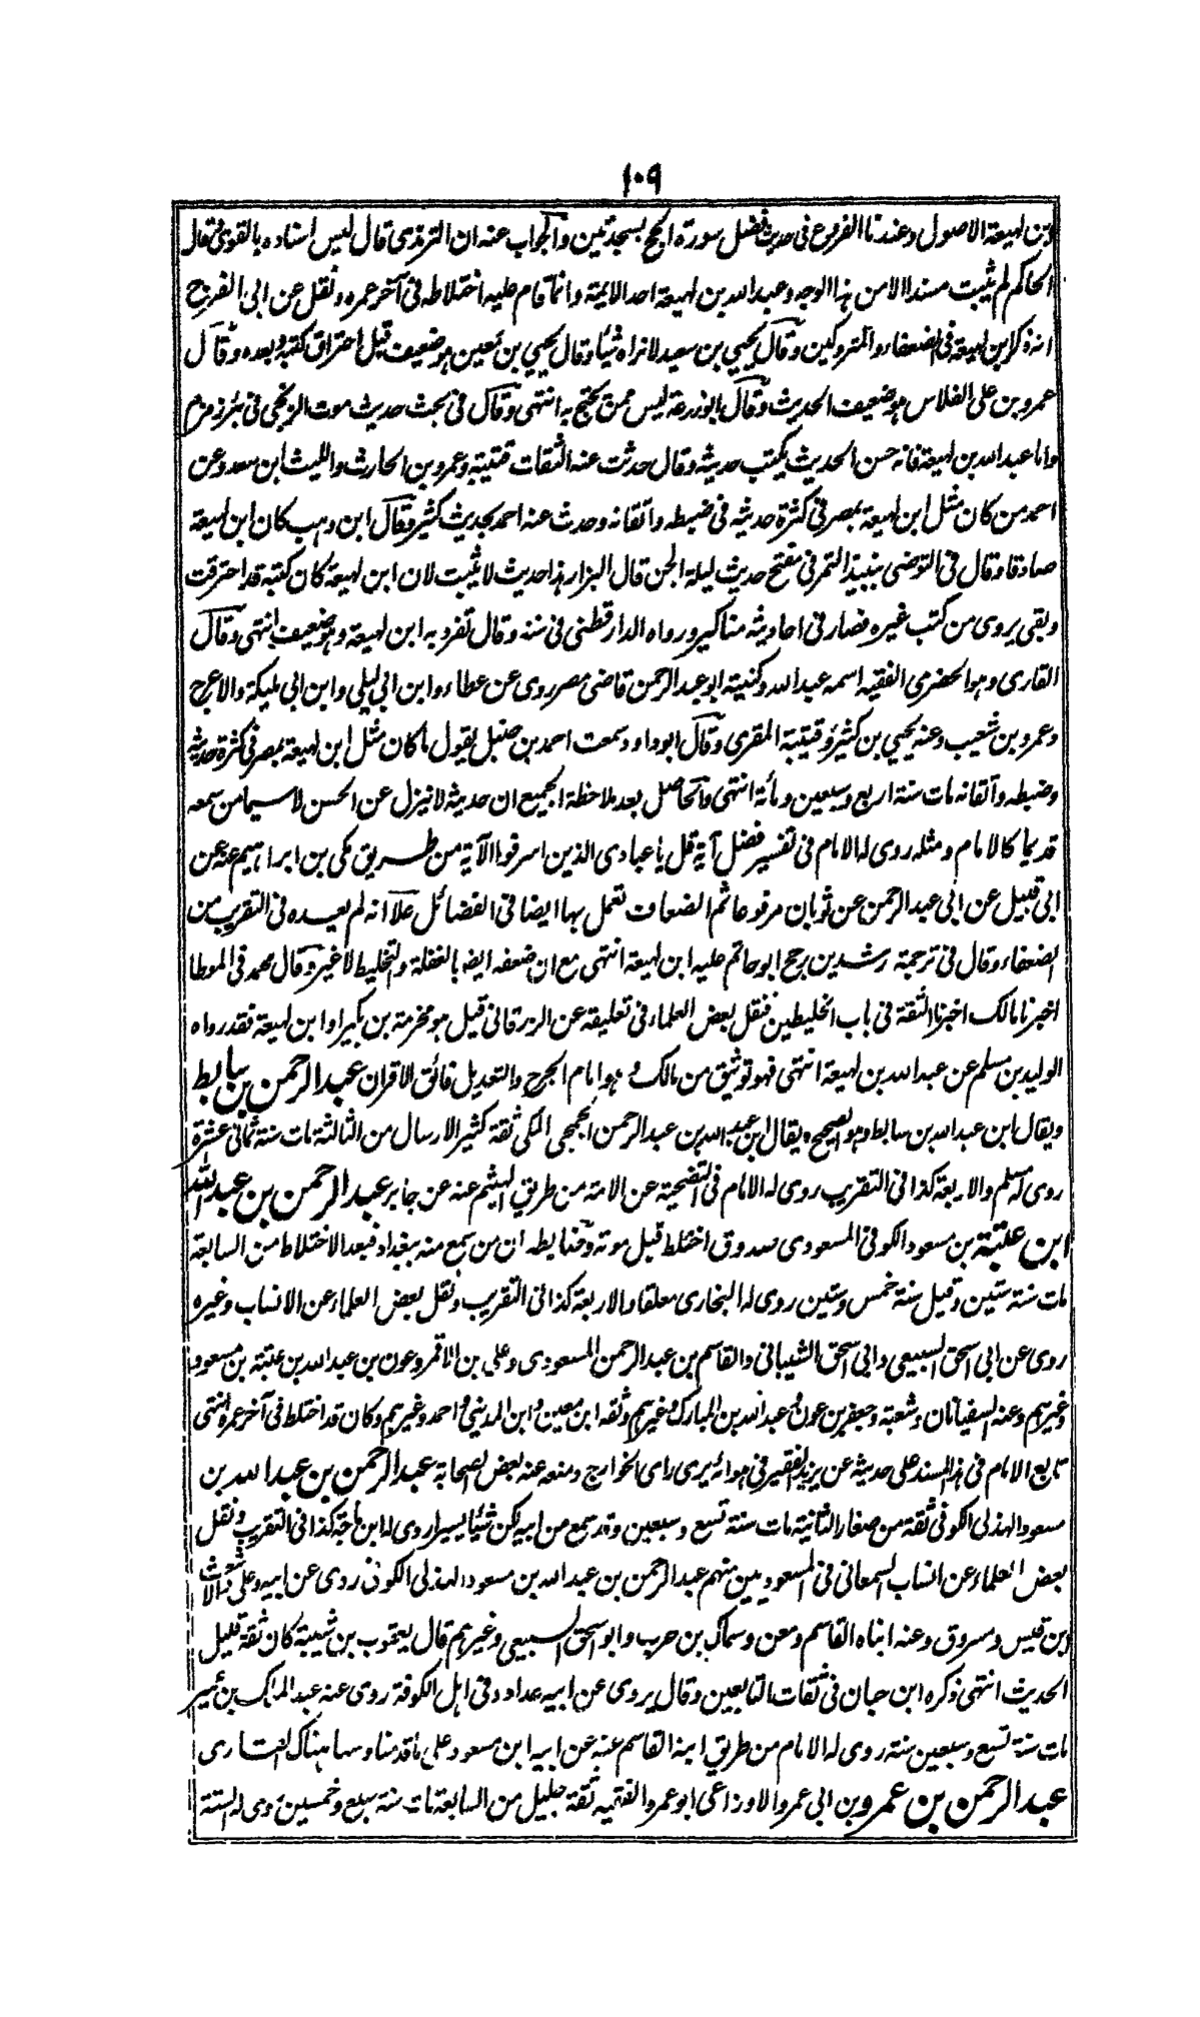 ١٠٩
وبن لهيعة الاصول وعندنا الفروع فى حديث فضل سورة الحج بسجدتين والجواب عنه ان الترمذى قال ليس اسناده بالقوى وقال
الحاكم لم يثبت مسندا الا من هذا الوجه وعبد الله بن لهيعة احد الائمة وانما قام عليه اختلاطه فى آخر عمره ونقل عن ابى الفرج
انه ذكر ابن لهيعة فى الضعفاء والمتروكين وقال يحيى بن سعيد لا نراه شيئا وقال يحيى بن معين هو ضعيف قبل احتراق كتبه وبعده وقال
عمرو بن على الفلاس هو ضعيف الحديث وقال ابو زرعة ليس ممن يحتج به انتهى وقال فى بحث حديث موت الزنجى فى بئر زمزم
واما عبد الله بن لهيعة فانه حسن الحديث يكتب حديثه وقال حدثت عنه الثقات قتيبة وعمرو بن الحارث والليث ابن سعد وعن
احمد من كان مثل ابن لهيعة بمصر فى كثرة حديثه فى ضبطه واتقانه وحدث عنه احمد بحديث كثير وقال ابن وهب كان ابن لهيعة
صادقا وقال فى التوضى بنبيذ التمر فى مفتح حديث ليلة الجن قال البزار هذا حديث لا يثبت لان ابن لهيعة كان كتبه قد احترقت
وبقى يروى من كتب غيره فصار فى احاديثه مناكير ورواه الدارقطنى فى سننه وقال تفرد به ابن لهيعة وهو ضعيف انتهى وقال
القارى وهو الحضرمى الفقيه اسمه عبد الله وكنيته ابو عبد الرحمن قاضى مصر روى عن عطاء وابن ابى ليلى وابن ابى مليكة والاعرج
وعمرو بن شعيب وعنه يحيى بن كثير وقتيبة المقرى وقال ابو داود سمعت احمد بن حنبل يقول ما كان مثل ابن لهيعة بمصر فى كثرة حديثه
وضبطه واتقانه مات سنة اربع وسبعين ومأة انتهى والحاصل بعد ملاحظة الجميع ان حديثه لا ينزل عن الحسن لا سيما من سمعه
قديما كالامام ومثله روى له الامام فى تفسير فضل آية قل يا عبادى الذين اسرفوا الآية من طريق مكى بن ابراهيم عنه عن
ابى قبيل عن ابى عبد الرحمن عن ثوبان مرفوعا ثم الضعاف تعمل بها ايضا فى الفضائل علا انه لم يعده فى التقريب من
الضعفاء وقال فى ترجمة رشدين رجح ابو حاتم عليه ابن لهيعة انتهى مع ان ضعفه ايضا بالغفلة والتخليط لا غير وقال محمد فى الموطا
اخبرنا مالك اخبرنا الثقة فى باب الخليطين فنقل بعض العلماء فى تعليقه عن الزرقانى قيل هو مخرمة بن بكير او ابن لهيعة فقد رواه
الوليد بن مسلم عن عبد الله بن لهيعة انتهى فهو توثيق من مالك وهو امام الجرح والتعديل فائق الاقران عبد الرحمن بن سابط
ويقال ابن عبد الله بن سابط وهو الصحيح ويقال ابن عبد الله بن عبد الرحمن الجمحى المكى ثقة كثير الارسال من الثالثة مات سنة ثمانى عشرة
روى له مسلم والاربعة كذا فى التقريب روى له الامام فى التضحية عن الامة من طريق الهيثم عنه عن جابر عبد الرحمن بن عبد الله
ابن عتبة بن مسعود الكوفى المسعودى صدوق اختلط قبل موته وضابطه ان من سمع منه ببغداد فبعد الاختلاط من السابعة
مات سنة ستين وقيل سنة خمس وستين روى له البخارى معلقا والاربعة كذا فى التقريب ونقل بعض العلماء عن الانساب وغيره
روى عن ابى اسحق السبيعى وابى اسحق الشيبانى والقاسم بن عبد الرحمن المسعودى وعلى بن الاقمر وعون بن عبد الله بن عتبة بن مسعود
وغيرهم وعنه السفيانان وشعبة وجعفر بن عون وعبد الله بن المبارك وغيرهم وثقه ابن معين وابن المدينى واحمد وغيرهم وكان قد اختلط فى آخر عمره انتهى
تابع الامام فى هذا المسند على حديثه عن يزيد الفقير فى هوانه يرى راى الخوارج ومنعه عنه بعض الصحابة عبد الرحمن بن عبد الله بن
مسعود الهذلى الكوفى ثقة من صغار الثانية مات سنة تسع وسبعين وقد سمع من ابيه لكن شيئا يسيرا روى له ابن ماجة كذا فى التقريب ونقل
بعض العلماء عن انساب السمعانى فى المسعوديين منهم عبد الرحمن بن عبد الله بن مسعود الهذلى الكوفى روى عن ابيه وعلى والاشعث
وبن قيس ومسروق وعنه ابناه القاسم ومعن وسماك بن حرب وابو اسحق السبيعى وغيرهم قال يعقوب بن شيبة كان ثقة قليل
الحديث انتهى ذكره ابن حبان فى ثقات التابعين وقال يروى عن ابيه عداده فى اهل الكوفة روى عنه عبد الملك بن عمير
مات سنة تسع وسبعين سنة روى له الامام من طريق ابنه القاسم عنه عن ابيه ابن مسعود على ما قدمنا وسها هناك القارى
عبد الرحمن بن عمرو بن ابى عمرو الاوزاعى ابو عمرو الفقيه ثقة جليل من السابعة مات سنة سبع وخمسين روى له الستة